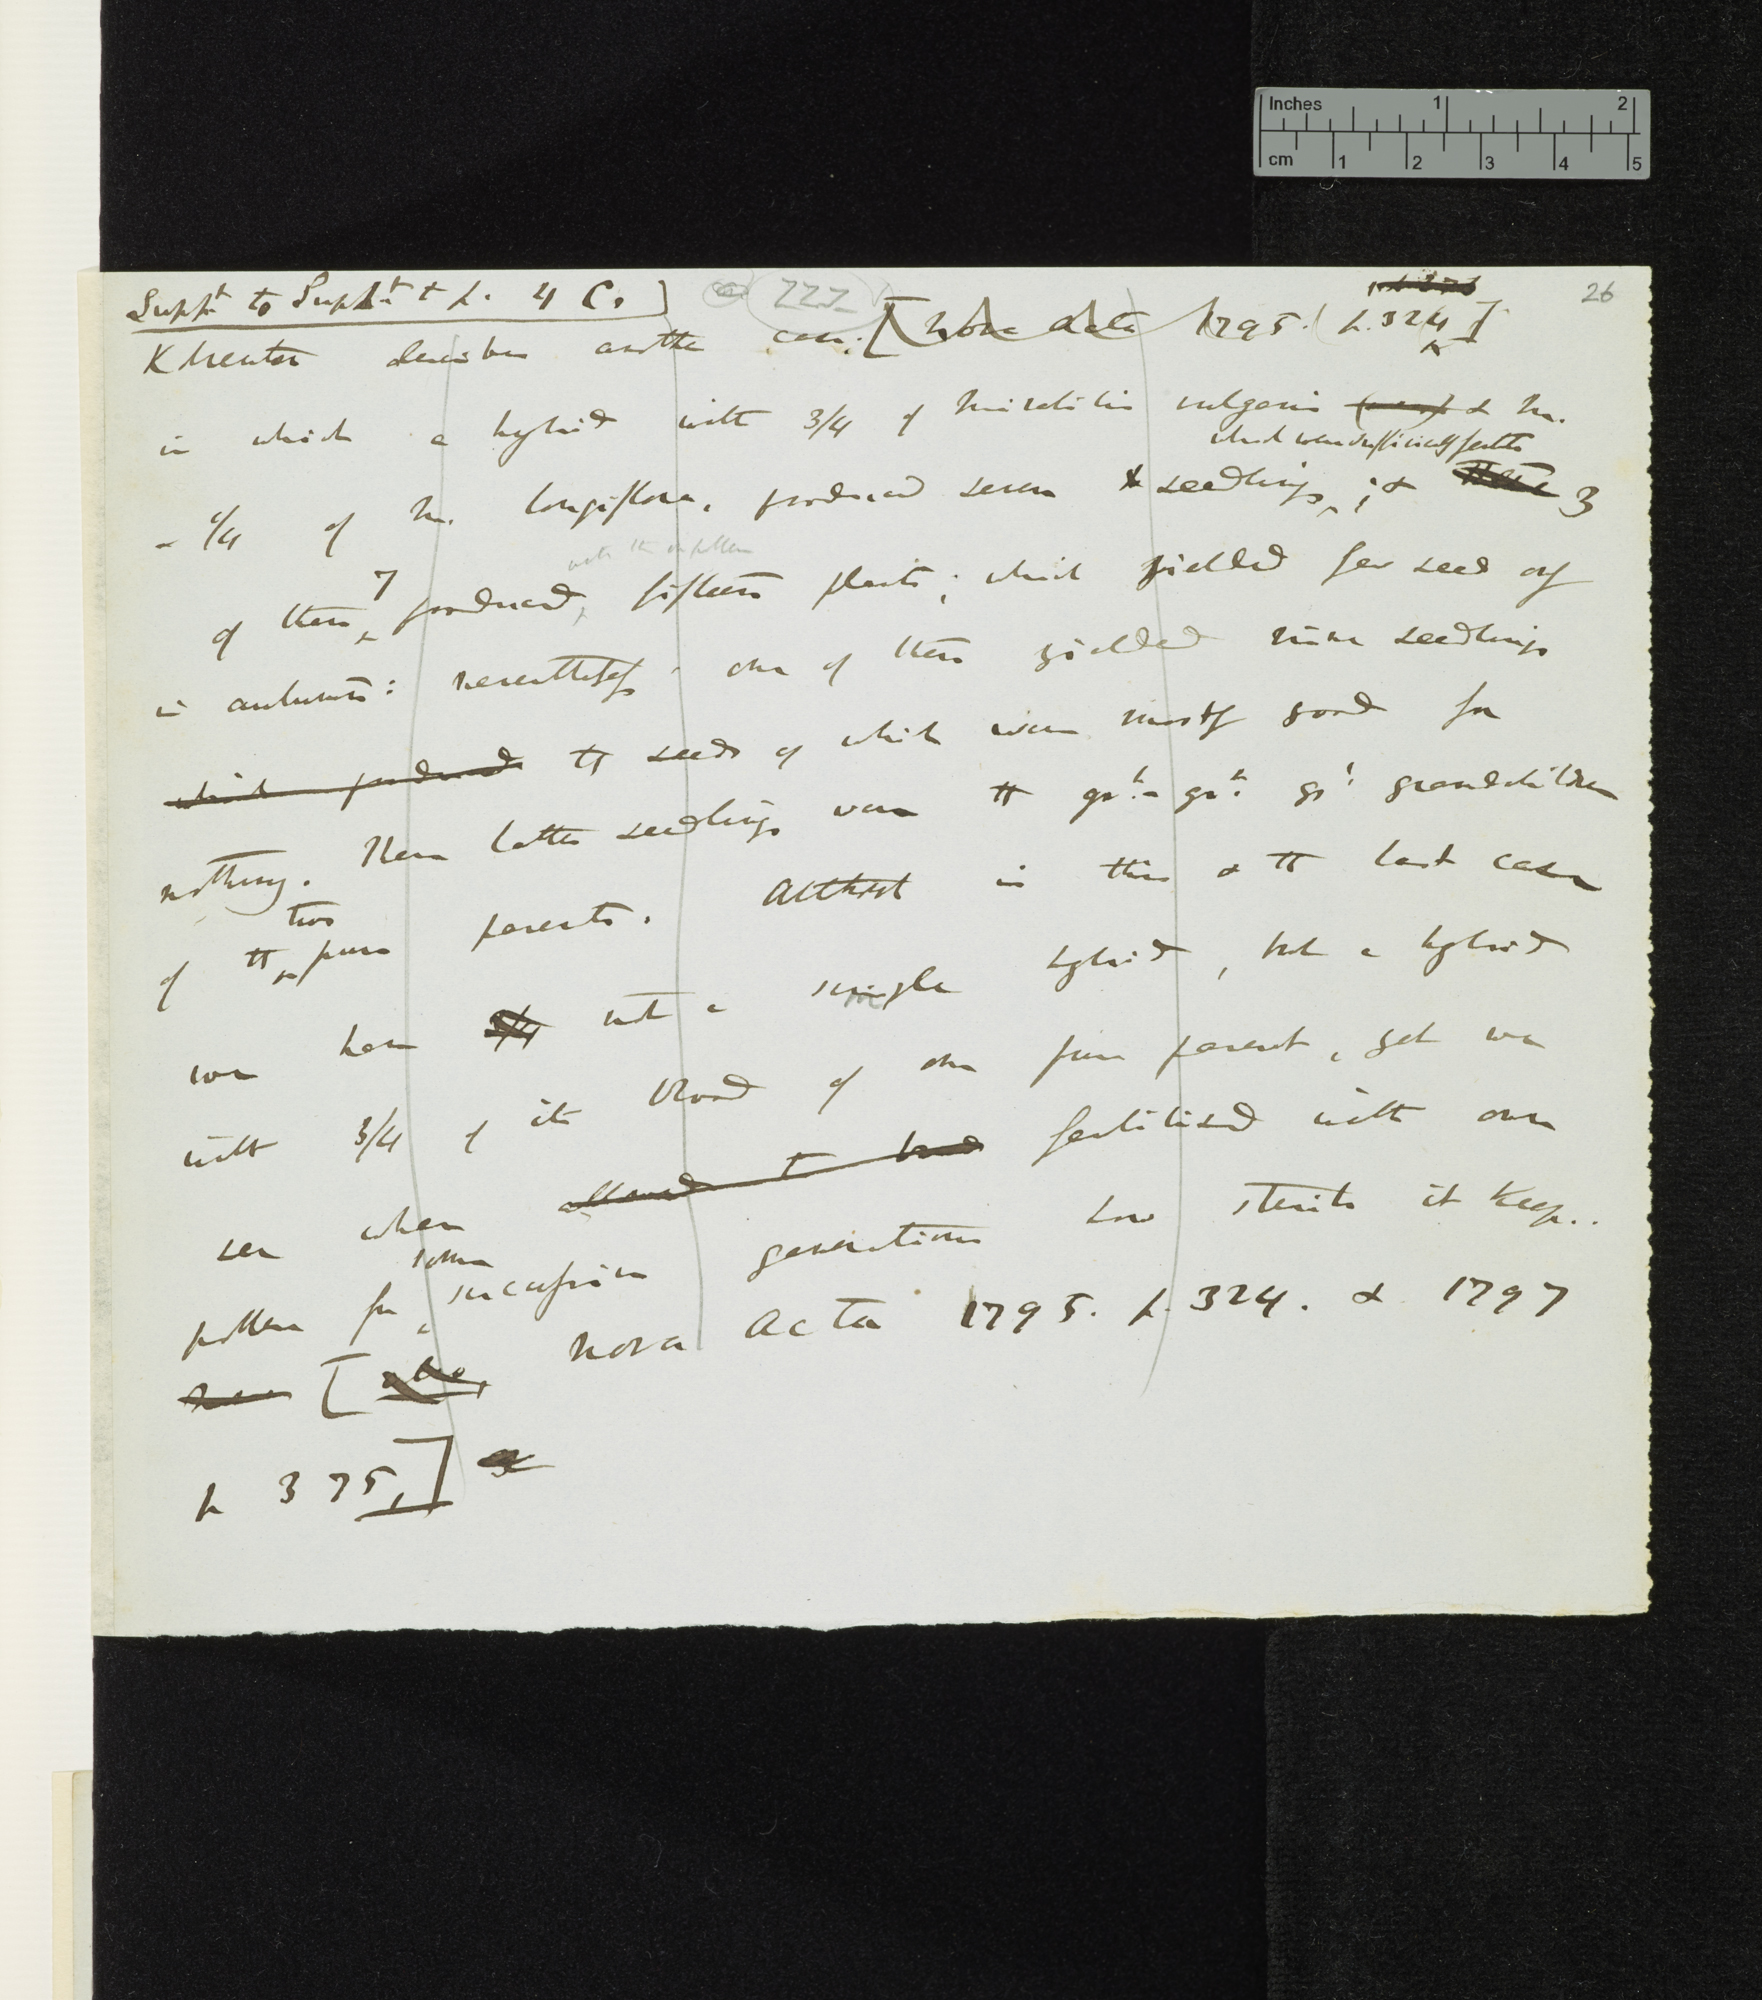 Inches 1 2
cm 1 2 3 4 5
26
Suppt to Supplt to p. 4 C.] 222
Kölreuter describes another case: [Nova Acta 1795. p. 324]
in which a hybrid with 3/4 of Mirabilis vulgaris & M.
which were sufficiently fertile
1/4 of M. longiflora, produced seven seedlings; & 3
with their own pollen
of these 7 produced, fifteen plants; which yielded few seed only
in autumn: nevertheless one of these yielded nine seedlings
which produced the seeds of which were mostly good for
nothing. These latter seedlings were the gr.t- gr.t gr.t grandchildren
two
of the pure parents. Althost in this & the last case
we have not a simple hybrid, but a hybrid
with 3/4 of its blood of one pure parent, yet we
see when allowed to breed fertilised with own
some
pollen for successive generations how sterile it keeps.
[ Nova Acta 1795. p. 324. & 1797
p 375,]